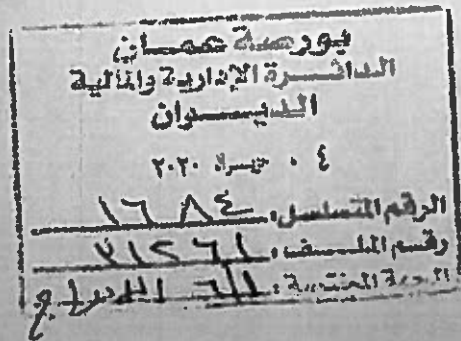 بورصة عمان
الدائرة الإدارية والمالية
الديوان
٠٤ حزيران ٢٠٢٠
الرقم المتسلسل: ١٦٨٤
رقم الملف: ٣١٢٦١
الجهة المختصة: